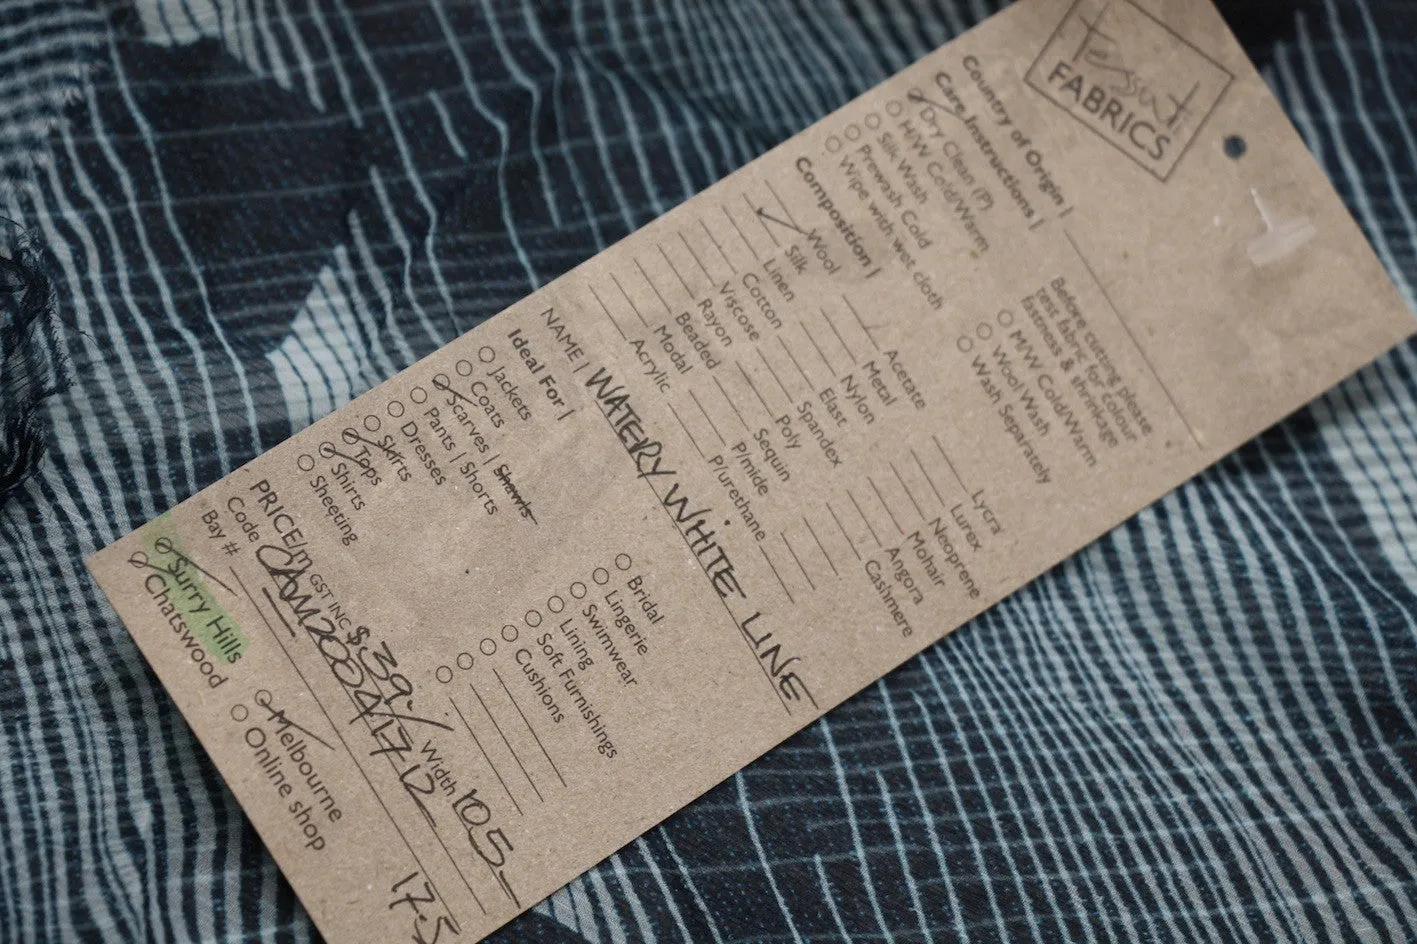 Tessuti
FABRICS
Country of Origin |
Care Instructions |
Dry Clean (P)
H/W Cold/Warm
Silk Wash
Prewash Cold
Wipe with wet cloth
Before cutting please
test fabric for colour
fastness & shrinkage
M/W Cold/Warm
Wool Wash
Wash Separately
Composition |
Wool
Silk
Linen
Cotton
Viscose
Rayon
Beaded
Modal
Acrylic
Acetate
Metal
Nylon
Elast
Spandex
Poly
Sequin
P/mide
P/urethane
Lycra
Lurex
Neoprene
Mohair
Angora
Cashmere
NAME | WATERY WHITE LINE
Ideal For |
Jackets
Coats
Scarves | Shawls
Pants | Shorts
Dresses
Skirts
Tops
Shirts
Sheeting
Bridal
Lingerie
Swimwear
Lining
Soft Furnishings
Cushions
PRICE/m GST INC $39./ Width 105
Code
Bay #
17.5
Surry Hills
Chatswood
Melbourne
Online shop